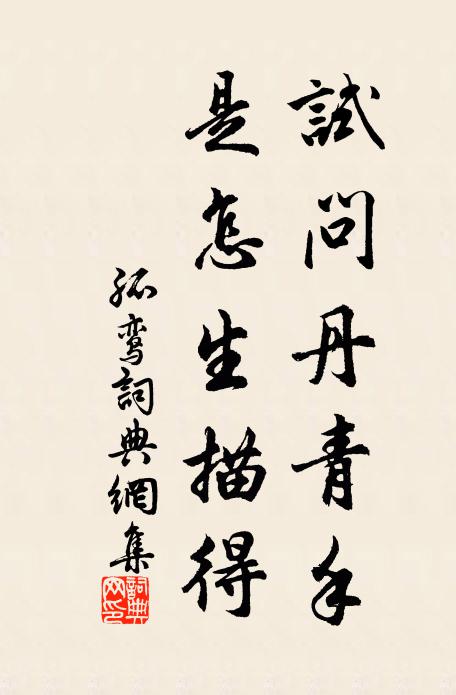 試問丹青手
是怎生描得
孤鸾詞典網集
詞典网印